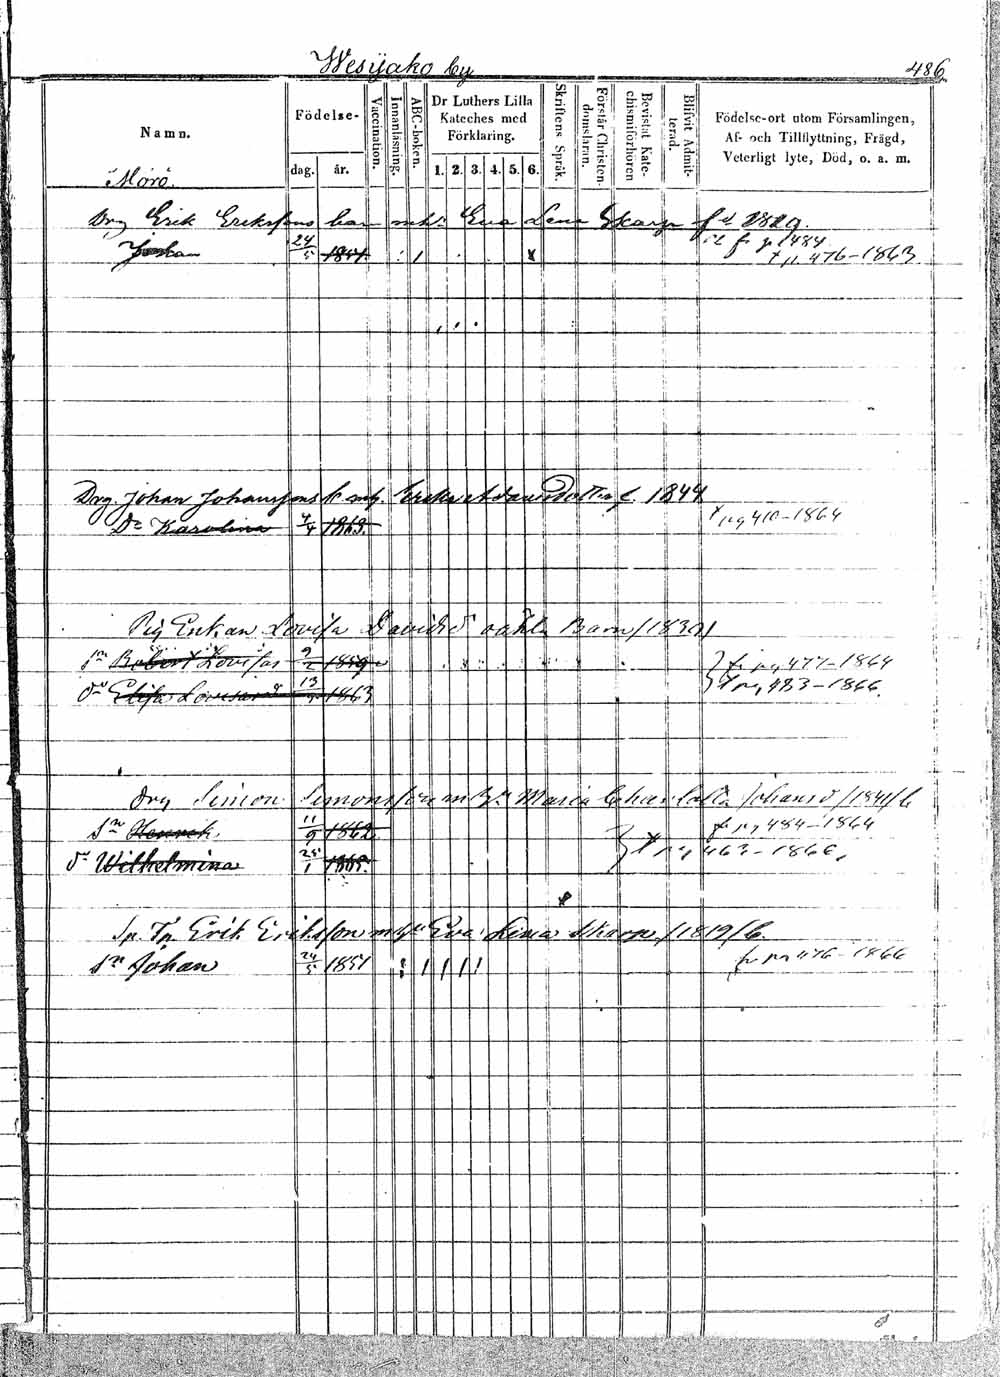 Wesijako by 486
Namn. Födelse- dag. år. Vaccination. Innanläsning. ABC-boken. Dr Luthers Lilla Kateches med Förklaring. 1. 2. 3. 4. 5. 6. Skriftens Språk. Förstår Christendomsläran. Bevistat Katechismiförhören Blifvit Admitterad. Födelse-ort utom Församlingen, Af- och Tillflyttning, Frägd, Veterligt lyte, Död, o. a. m.
Mörö.
Drg Erik Erikssons barn m h: Eva Lena Skarp
Johan 24/5 1851 fr p 484
476-1863
Drg. Johan Johanssons 1844
Dr Karolina 4/4 1863. pg 410-1864
Pig Enkan Lovisa Davidsd oäkta Barn /1830/
sn Robert Lovisas 9/2 1859 fr pg 477-1864
dr Elisa Lovisasd 13 1863 pg 483-1866.
drg Simon Simonsson m h Maria Charlotta Johansd /1841/ b
sn Henrik. 11/9 1862 fr pg 484-1864
dr Wilhelmina 25/1 pg 463-1866.
Sp. Tp. Erik Eriksson m h Eva Lena Skarp /1819/ b.
sn Johan 24/5 1851 fr pg 476-1866